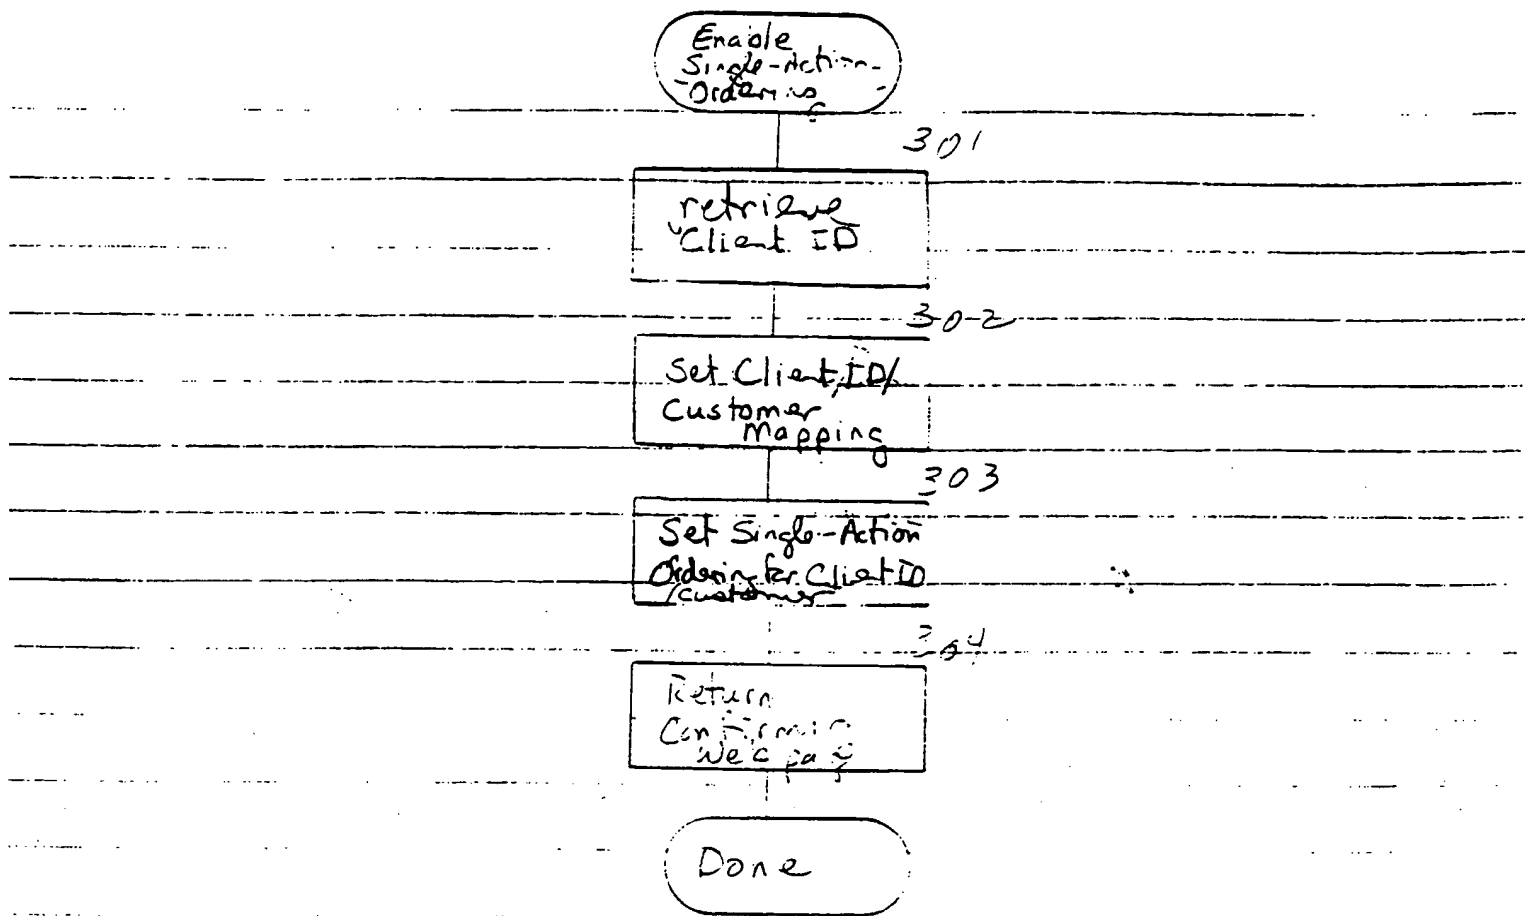 Enable
Single-Action-
Ordering
301
retrieve
Client ID
302
Set Client ID/
Customer
Mapping
303
Set Single-Action
Ordering for Client ID
/customer
304
Return
Confirming
Web page
Done